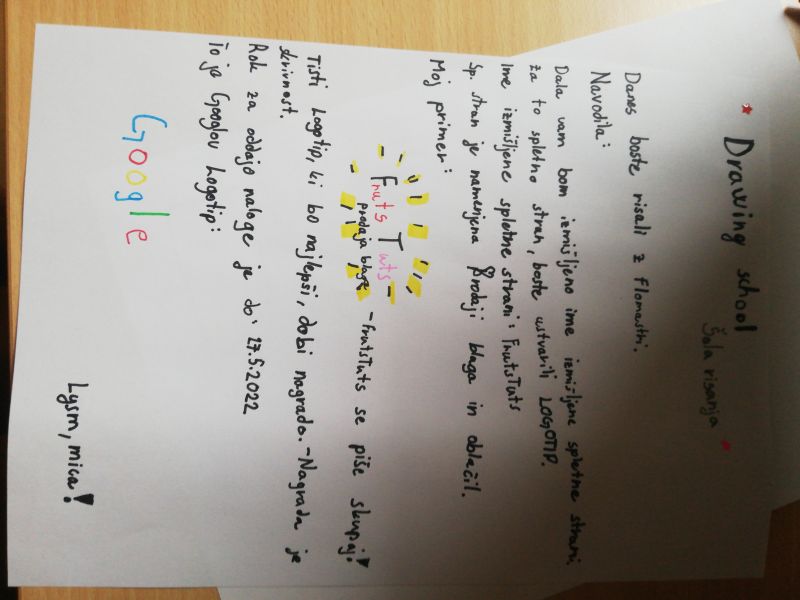 Drawing school
Šola risanja
Danes boste risali z flomastri.
Navodila:
Dala vam bom izmišljeno ime izmišljene spletne strani
za to spletno stran, boste ustvarili LOGOTIP.
Ime izmišljene spletne strani: FnutsTuts
Sp. stran je namenjena prodaji blaga in oblačil.
Moj primer:
Fnuts Tuts
prodaja blaga
- FnutsTuts se piše skupaj!
Tisti Logotip, ki bo najlepši, dobi nagrado. - Nagrada je
skrivnost.
Rok za oddajo naloge je do: 27.5.2022
To je Googlov Logotip:
Google
Lysm, mica!